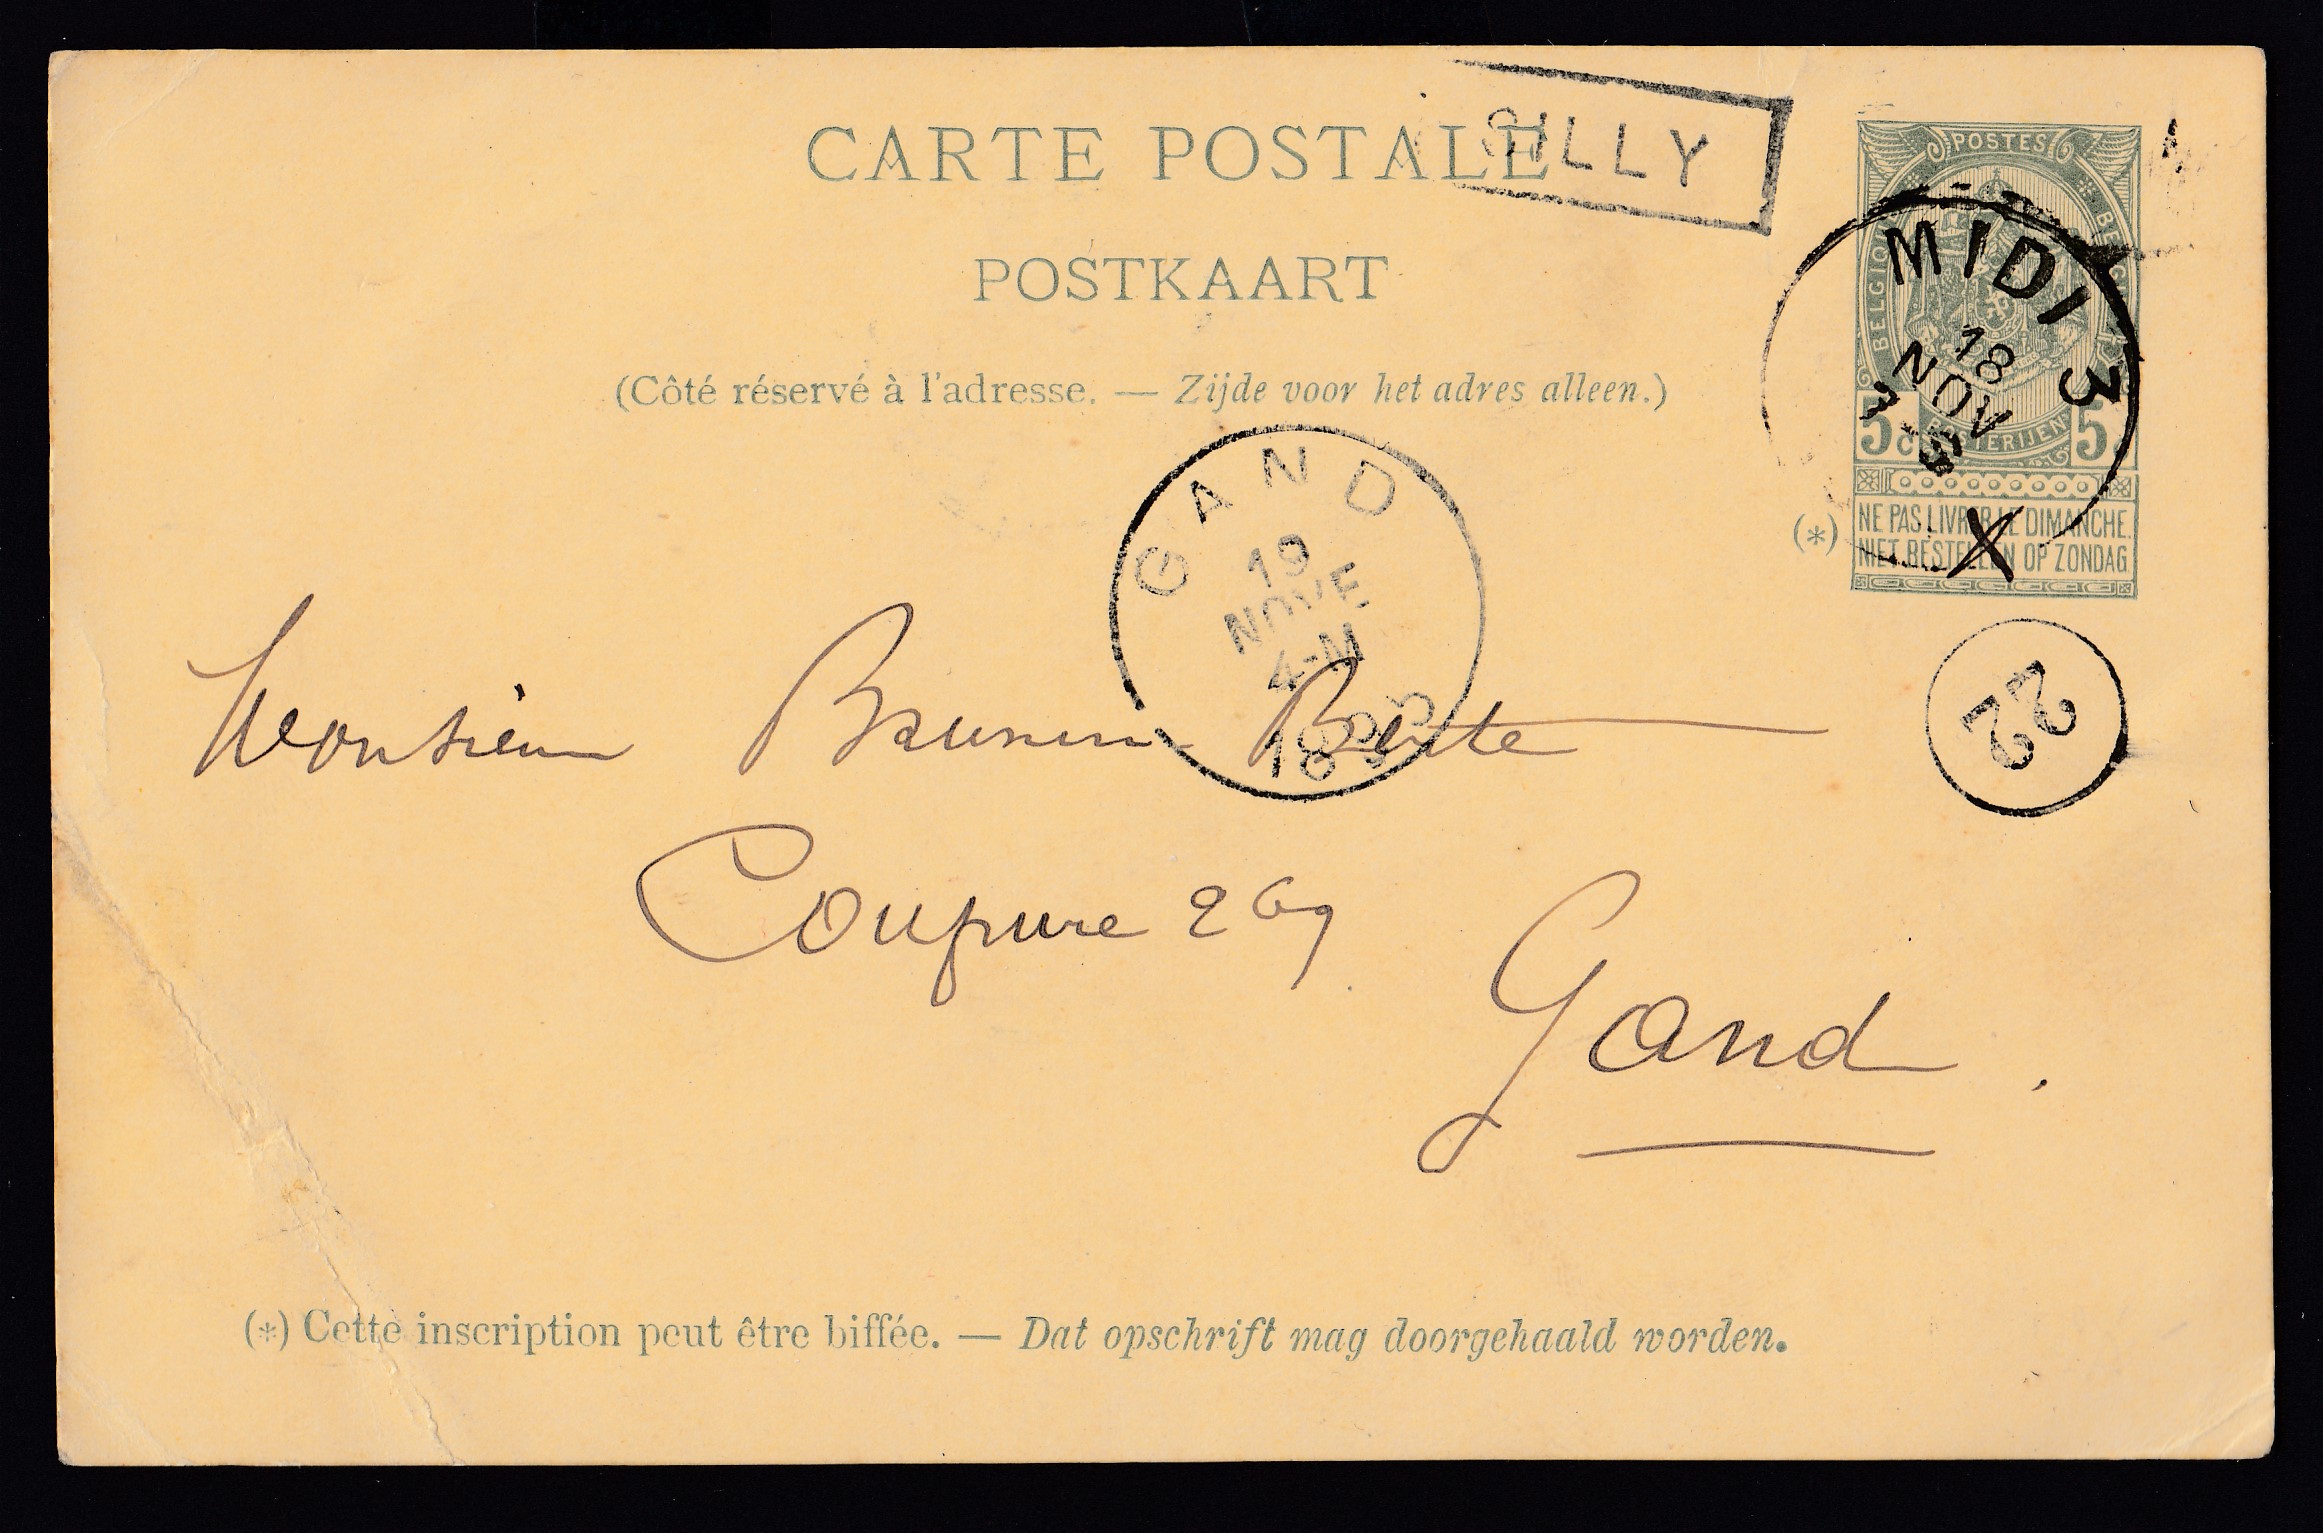 CARTE POSTALE
SILLY
POSTKAART
(Côté réservé à l'adresse. — Zijde voor het adres alleen.)
POSTES
BELGIQUE
BELGIË
5 c POSTERIJEN 5 c
(*) NE PAS LIVRER LE DIMANCHE.
NIET BESTELLEN OP ZONDAG.
MIDI 3
18
NOV
7-S
X
GAND
19
NOVE
4-M
22
Monsieur
Coupure 269
Gand.
(*) Cette inscription peut être biffée. — Dat opschrift mag doorgehaald worden.